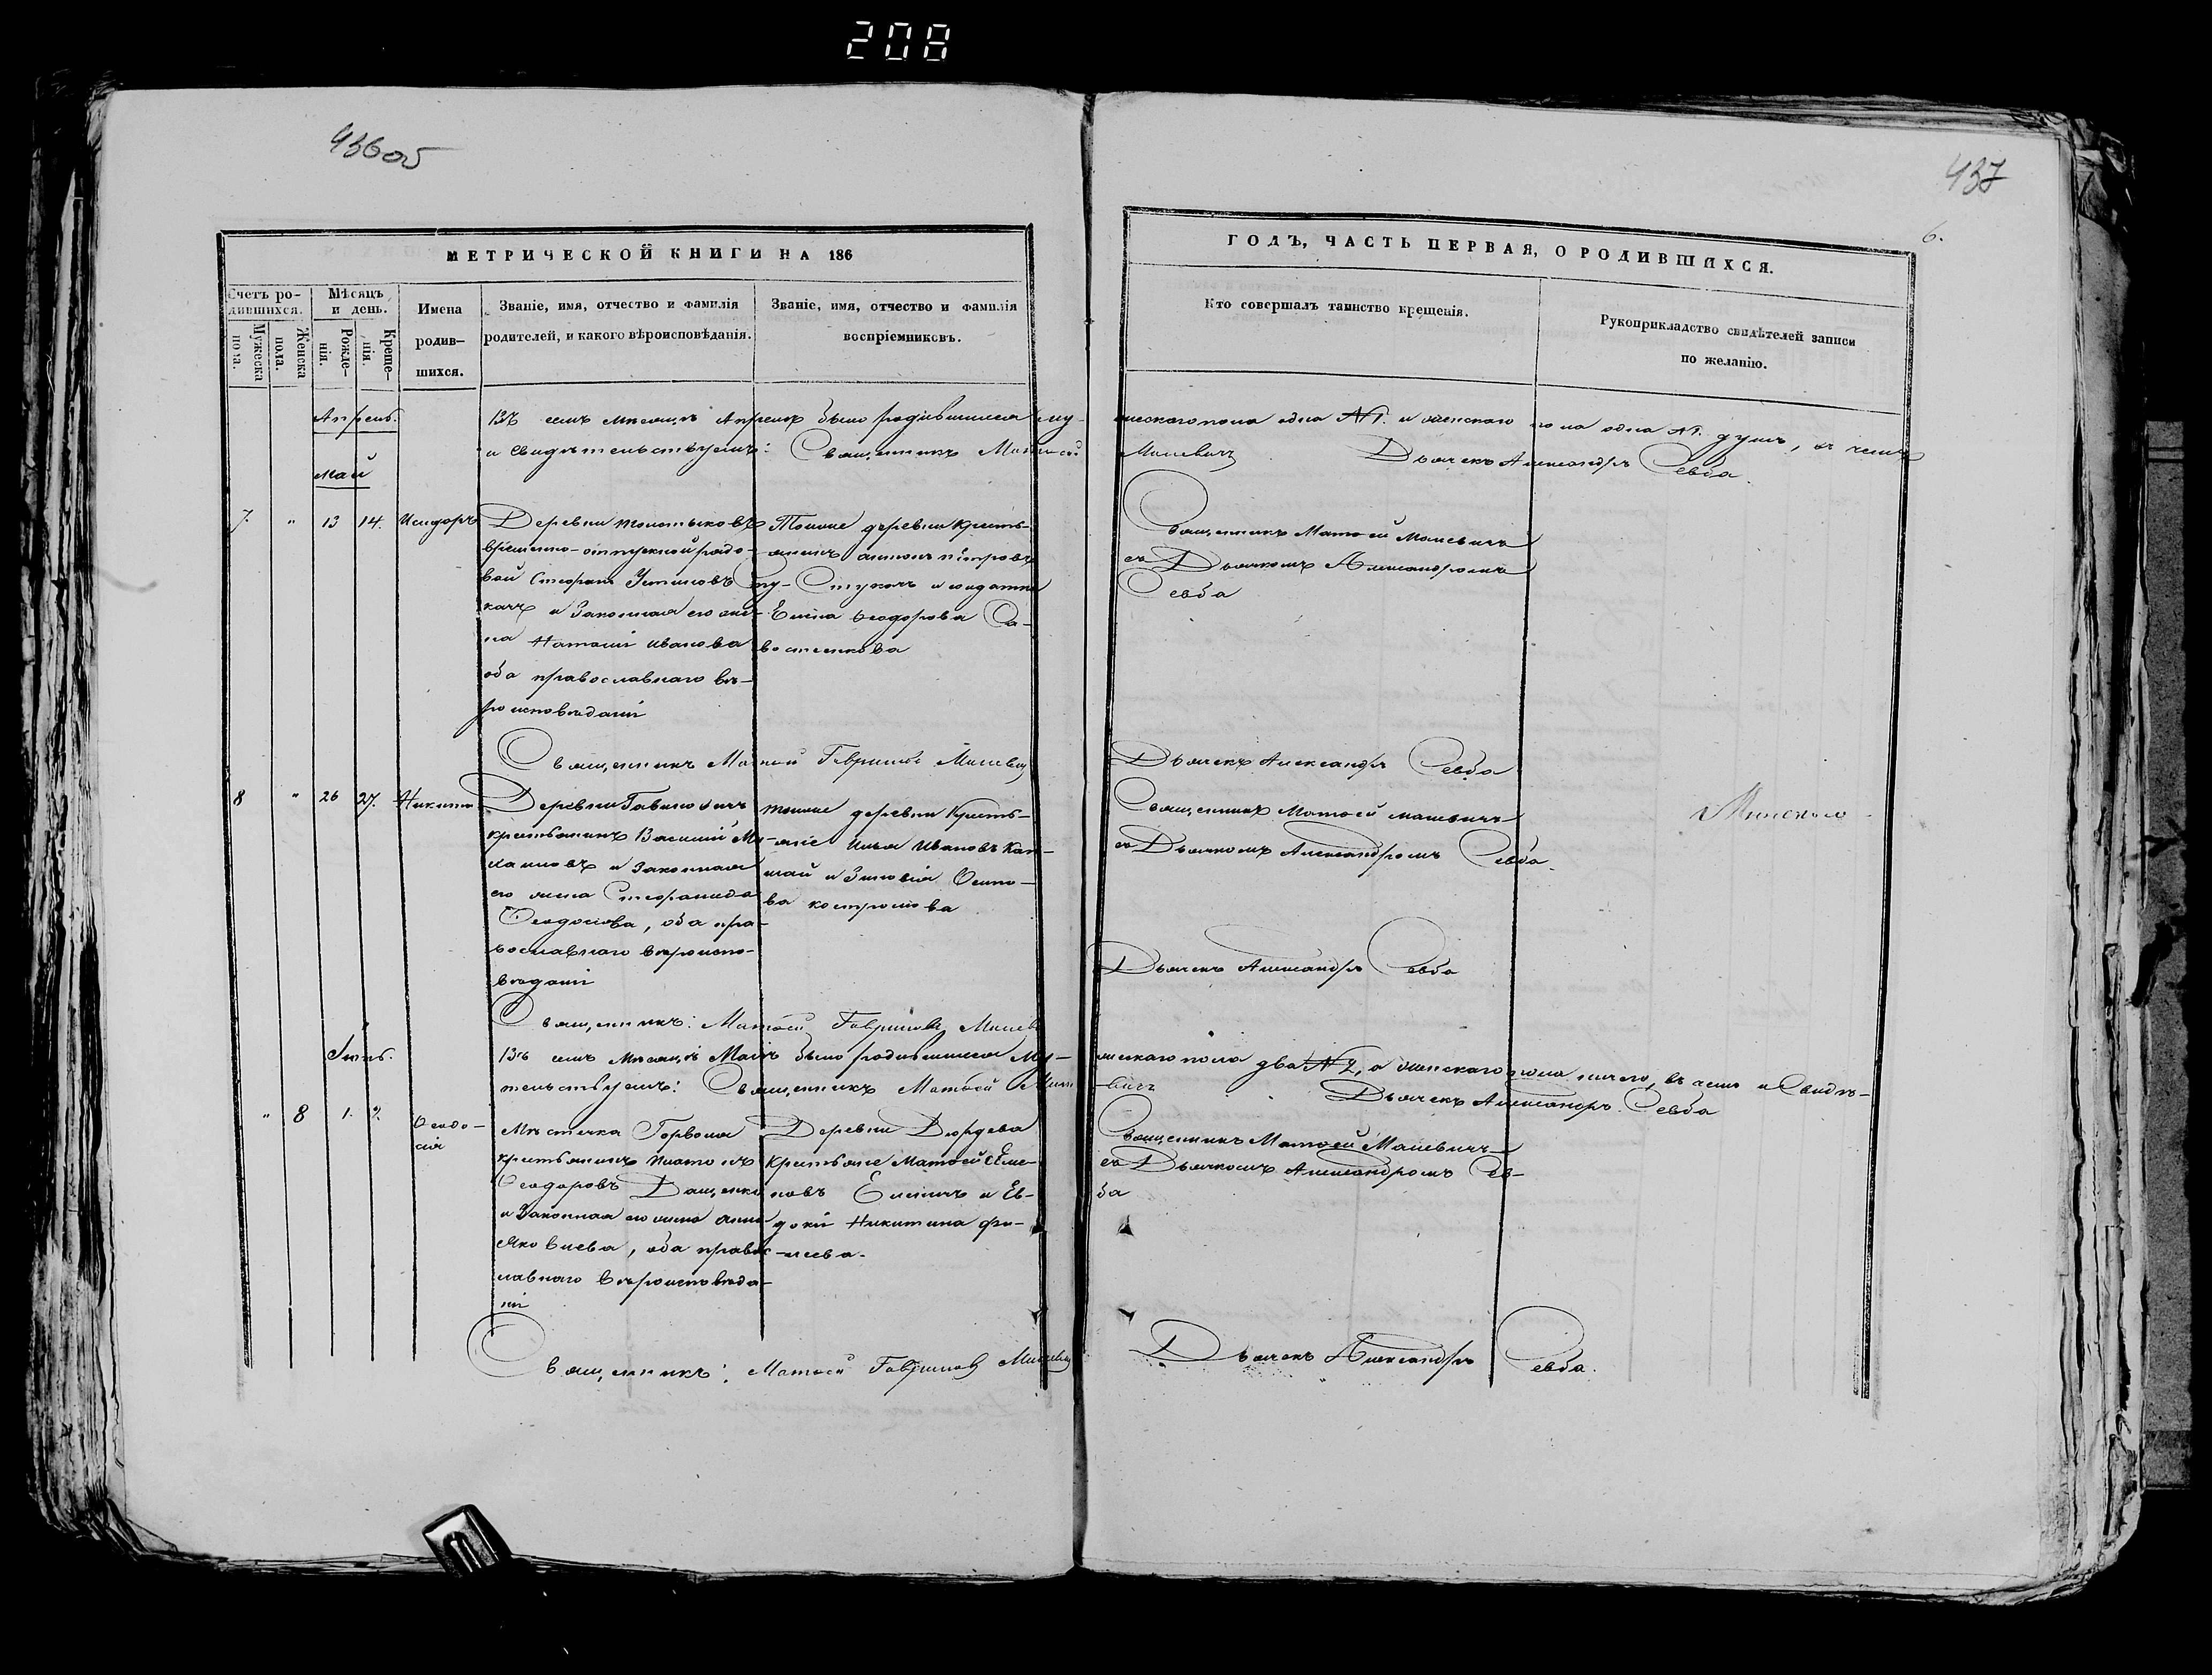 208
436об
437
6.
МЕТРИЧЕСКОЙ КНИГИ НА 186
ГОДЪ, ЧАСТЬ ПЕРВАЯ, О РОДИВШИХСЯ.
Счетъ ро-
дившихся.
Мужеска
пола.
Женска
пола.
Мѣсяцъ
и день.
Рожде-
нія.
Креще-
нія.
Имена
родив-
шихся.
Званіе, имя, отчество и фамилія
родителей, и какого вѣроисповѣданія.
Званіе, имя, отчество и фамилія
воспріемниковъ.
Кто совершалъ таинство крещенія.
Рукоприкладство свидѣтелей записи
по желанію.
Апрель.
Въ семъ мѣсяцѣ Апрелѣ было родившихся му-
жескаго пола одна №1. и женскаго пола одна №1. душъ, въ чемъ
и свидѣтельствуемъ: Священникъ Матѳей
Малевичъ Дьячекъ Александръ Севба.
Май
7. " 13 14. Исидоръ
Деревни
временно-отпускной рядо-
вой Стефанъ Устиновъ Сту-
качъ и законная его же-
на Наталія Иванова
оба православнаго вѣ-
роисповѣданія
Тойже деревни кресть-
янинъ Антонъ Петровъ
Стукачъ и солдатка
Елена Ѳеодорова Са-
востенкова
Священникъ Матѳей Малевичъ
съ Дьячкомъ Александромъ
Севба
Священникъ Матѳей Гавриловъ Малевичъ
Дьячекъ Александръ Севба
8 " 26 27. Никита
Деревни
крестьянинъ Василій
и законная
его жена Стефанида
Ѳеодосіева, оба пра-
вославнаго вѣроиспо-
вѣданія
тойже деревни кресть-
яне Илья Ивановъ
и Зиновія Осипо-
ва
Священникъ Матѳей Малевичъ
съ Дьячкомъ Александромъ Севба.
Дьячекъ Александръ Севба
Священникъ: Матѳей Гавриловъ Малевичъ
Іюнь.
Въ семъ мѣсяцѣ Маѣ было родившихся му-
жескаго пола два №2, а женскаго пола ничего, въ чемъ и свидѣ-
тельствуемъ: Священникъ Матѳей Мале-
вичъ Дьячекъ Александръ Севба
" 8 1. 2.
Ѳеодо-
сія
Мѣстечка Горволя
крестьянинъ Платонъ
Ѳеодоровъ
и законная его жена Анна
Яковлева, оба правос-
лавнаго вѣроисповѣда-
нія
Деревни Дюрдева
Крестьяне Матѳей
и Ев-
докія Никитина
Священникъ Матѳей Малевичъ
съ Дьячкомъ Александромъ Сев-
ба
Священникъ: Матѳей Гавриловъ Малевичъ
Дьячекъ Александръ Севба.